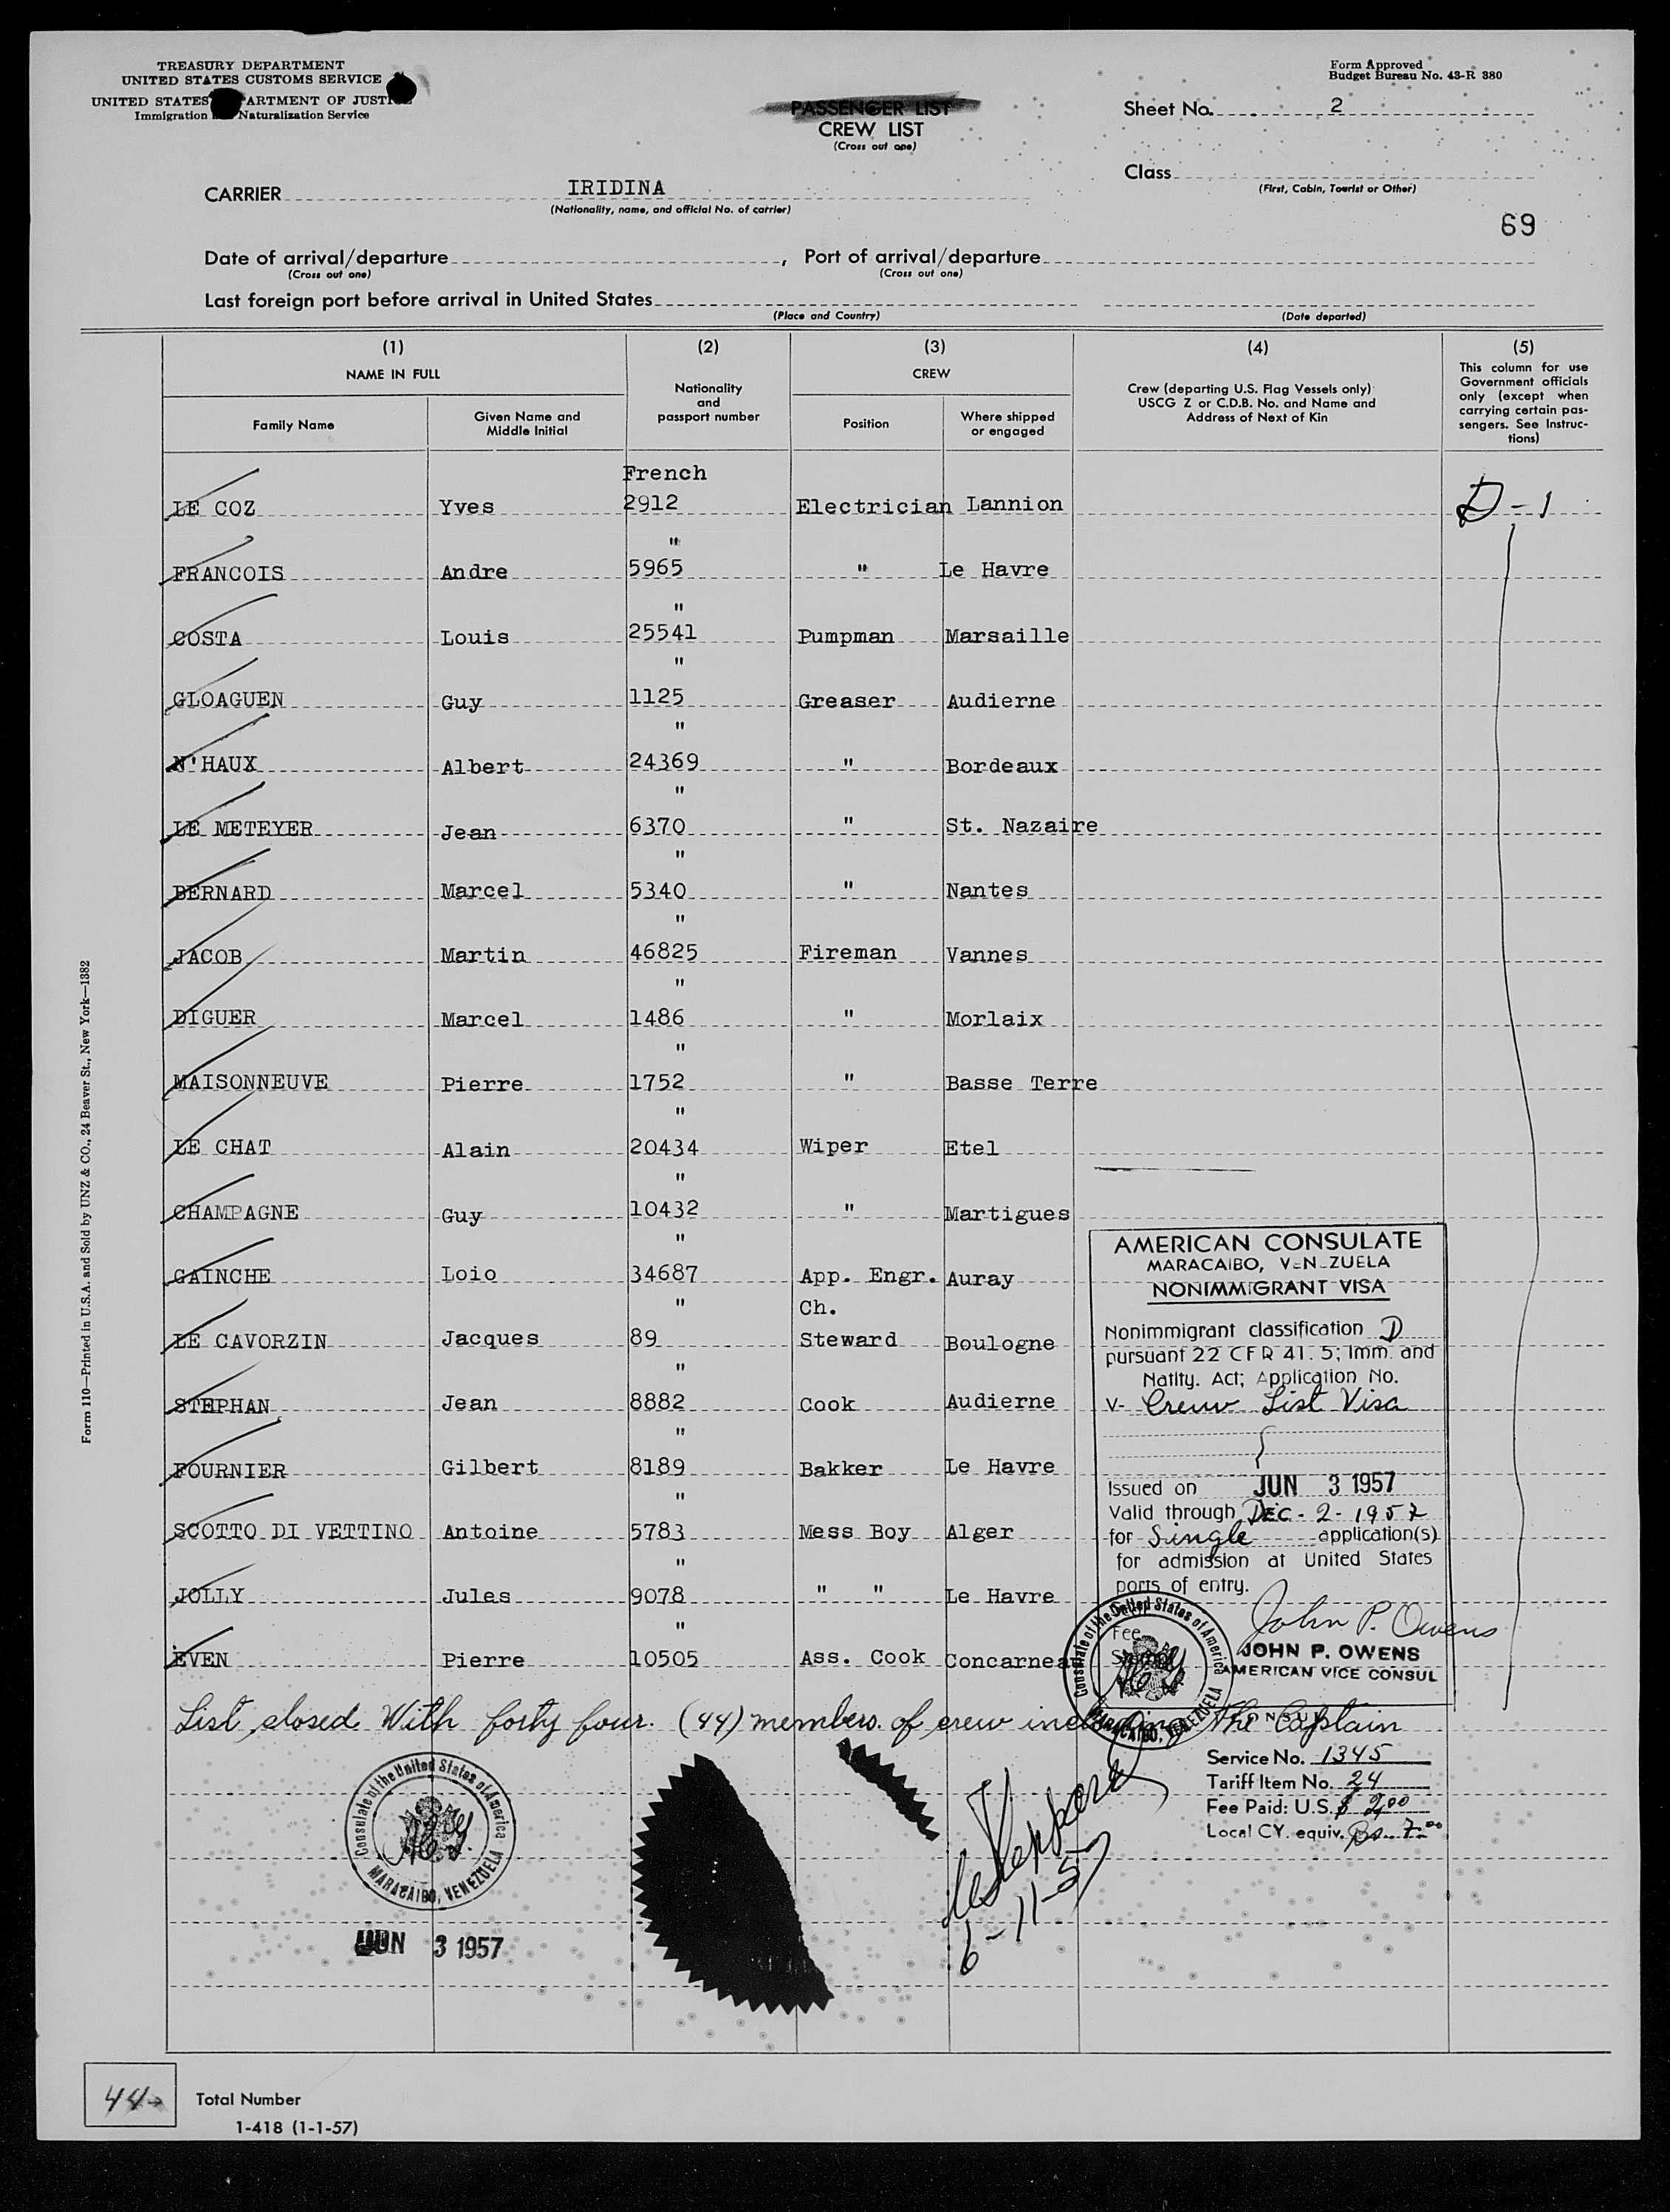 TREASURY DEPARTMENT
UNITED STATES CUSTOMS SERVICE
UNITED STATES ARTMENT OF JUSTI
Immigration Naturalization Service
Form Approved
Budget Bureau No. 43-R 380
PASSENGER LIST
CREW LIST
(Cross out one)
Sheet No. 2
Class
(First, Cabin, Tourist or Other)
CARRIER IRIDINA
(Nationality, name, and official No. of carrier)
69
Date of arrival/departure , Port of arrival/departure
(Cross out one) (Cross out one)
Last foreign port before arrival in United States
(Place and Country) (Date departed)
(1) (2) (3) (4) (5)
NAME IN FULL
Family Name
Given Name and
Middle Initial
Nationality
and
passport number
CREW
Position
Where shipped
or engaged
Crew (departing U.S. Flag Vessels only)
USCG Z or C.D.B. No. and Name and
Address of Next of Kin
This column for use
Government officials
only (except when
carrying certain pas-
sengers. See Instruc-
tions)
French
LE COZ Yves 2912 Electrician Lannion D-1
"
FRANCOIS Andre 5965 " Le Havre
"
COSTA Louis 25541 Pumpman Marsaille
"
GLOAGUEN Guy 1125 Greaser Audierne
"
N'HAUX Albert 24369 " Bordeaux
"
LE METEYER Jean 6370 " St. Nazaire
"
BERNARD Marcel 5340 " Nantes
"
JACOB Martin 46825 Fireman Vannes
"
DIGUER Marcel 1486 " Morlaix
"
MAISONNEUVE Pierre 1752 " Basse Terre
"
LE CHAT Alain 20434 Wiper Etel
"
CHAMPAGNE Guy 10432 " Martigues
"
GAINCHE Loio 34687 App. Engr. Auray
" Ch.
LE CAVORZIN Jacques 89 Steward Boulogne
"
STEPHAN Jean 8882 Cook Audierne
"
FOURNIER Gilbert 8189 Bakker Le Havre
"
SCOTTO DI VETTINO Antoine 5783 Mess Boy Alger
"
JOLLY Jules 9078 " " Le Havre
"
EVEN Pierre 10505 Ass. Cook Concarneau
AMERICAN CONSULATE
MARACAIBO, VEN-ZUELA
NONIMMIGRANT VISA
Nonimmigrant classification D
pursuant 22 CFR 41.5; Imm. and
Natlty. Act; Application No.
V- Crew List Visa
Issued on JUN 3 1957
Valid through DEC - 2 - 1957
for Single application(s)
for admission at United States
ports of entry.
Fee
John P. Owens
JOHN P. OWENS
AMERICAN VICE CONSUL
Consulate of the United States of America
MARACAIBO, VENEZUELA
List closed With forty four. (44) members of crew including The Captain
Service No. 1345
Tariff Item No. 24
Fee Paid: U.S. $ 2.00
Local CY. equiv. Bs. 7.00
Consulate of the United States of America
MARACAIBO, VENEZUELA
JUN 3 1957
6-11-57
44 Total Number
1-418 (1-1-57)
Form 110—Printed in U.S.A. and Sold by UNZ & CO., 24 Beaver St., New York—1382